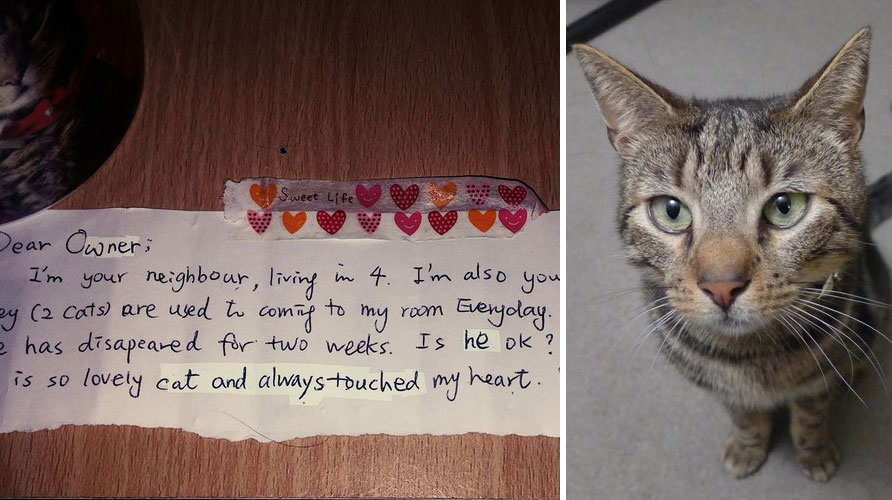 Sweet Life
Dear Owner;
I'm your neighbour, living in 4. I'm also you
ey (2 cats) are used to coming to my room Everyday.
e has disapeared for two weeks. Is he ok?
is so lovely cat and always touched my heart.